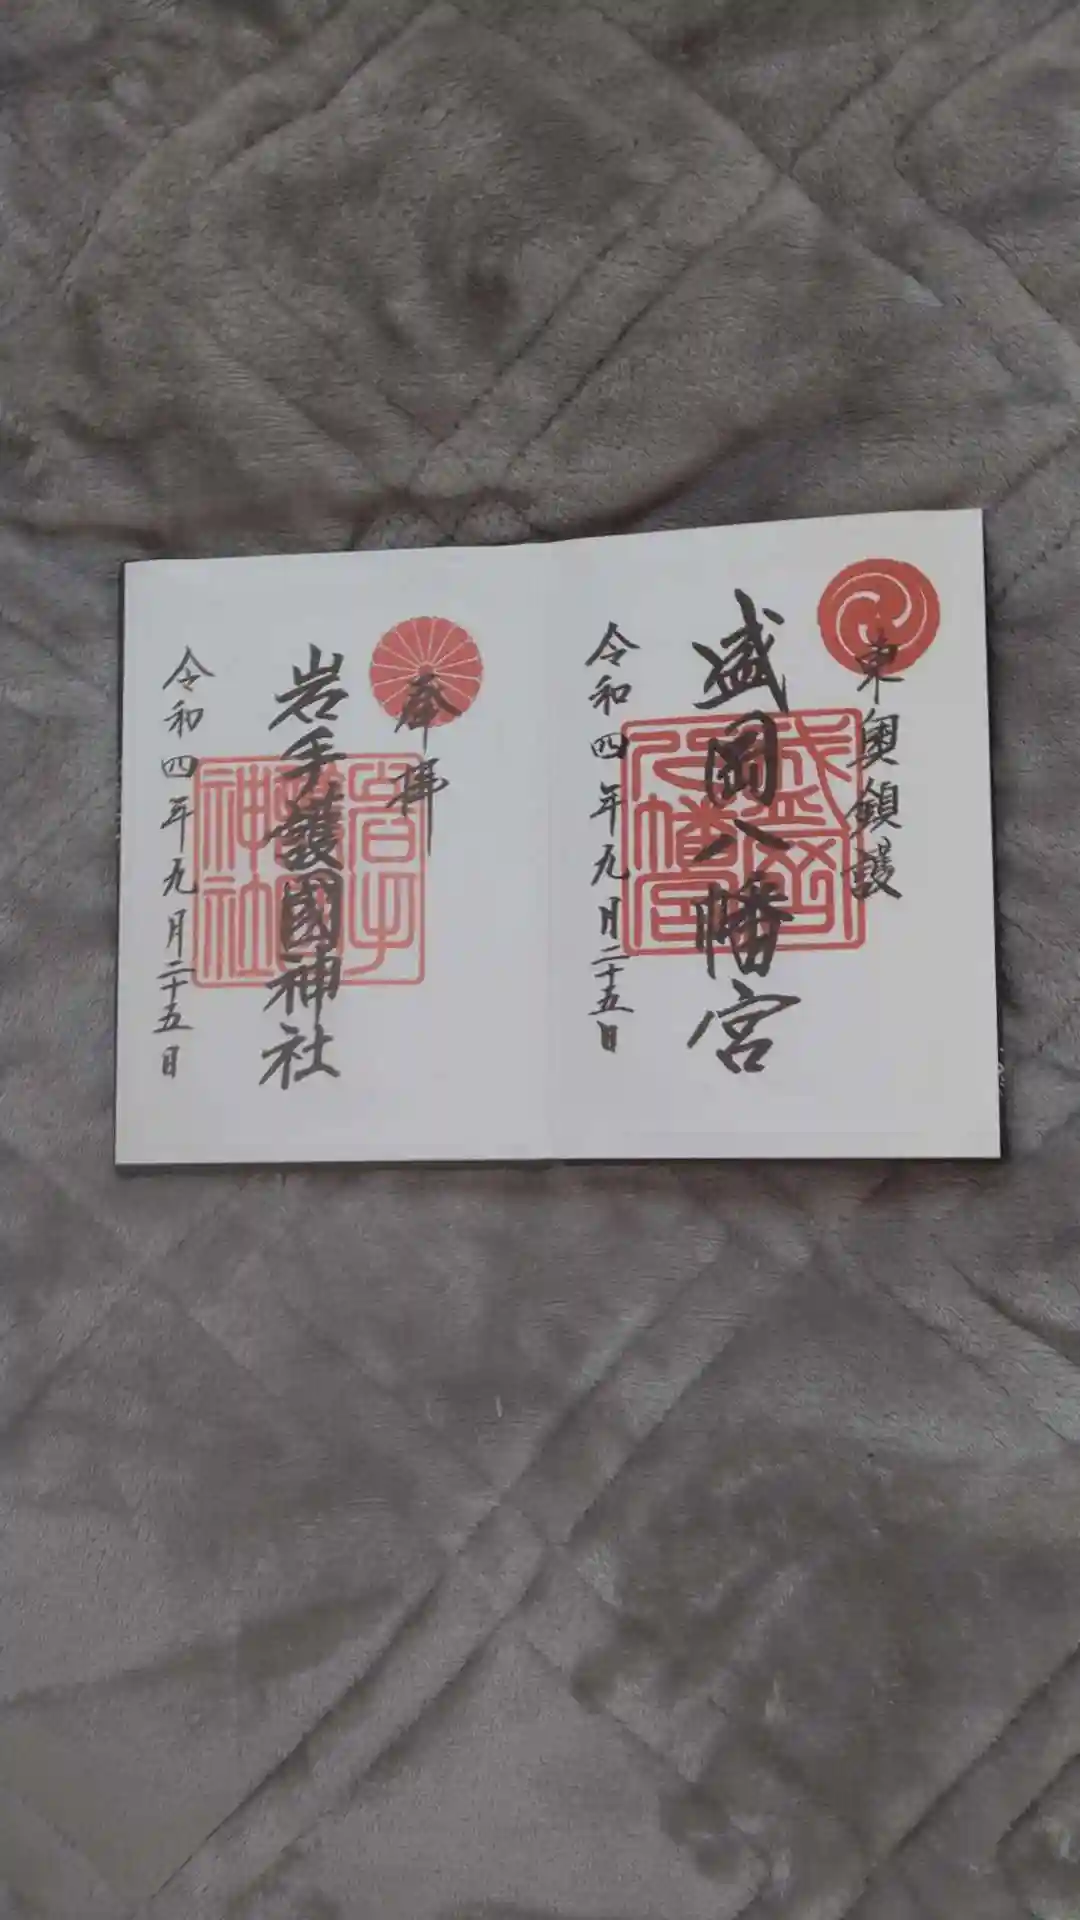 東奥鎮護
盛岡八幡宮
盛岡
八幡宮
令和四年九月二十五日
奉拝
岩手護國神社
岩手
護國
神社
令和四年九月二十五日